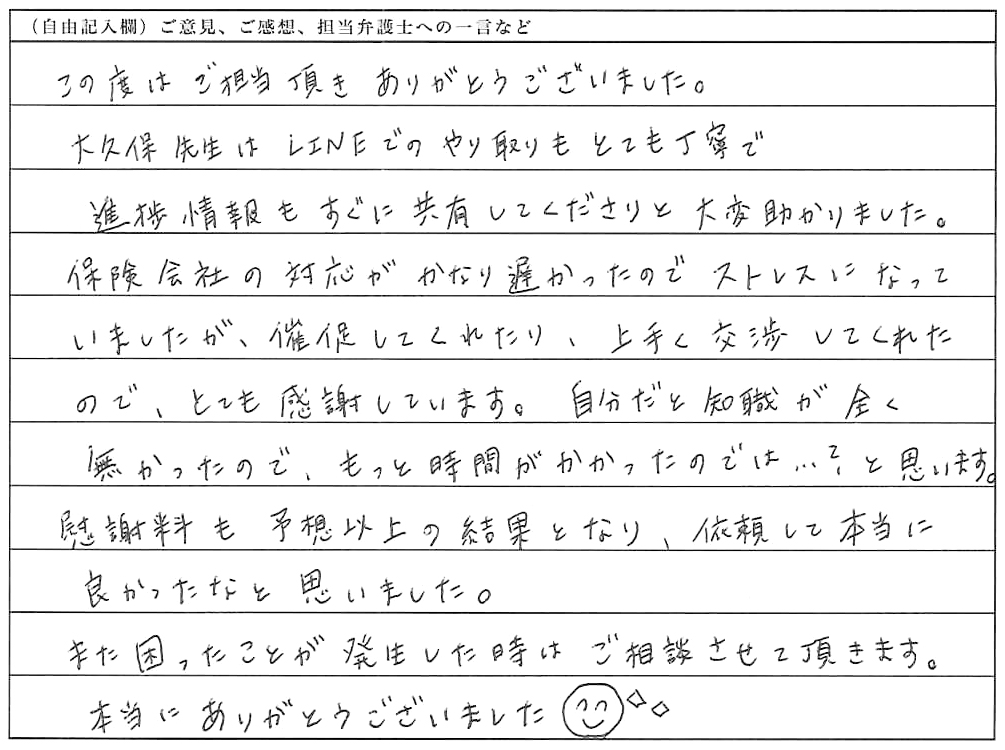 （自由記入欄）ご意見、ご感想、担当弁護士への一言など
この度は ご担当頂き ありがとうございました。
大久保先生は LINEでの やり取りも とても丁寧で
進捗情報も すぐに 共有してくださりと 大変助かりました。
保険会社の 対応が かなり遅かったので ストレスになって
いましたが、催促してくれたり、上手く交渉してくれた
ので、とても感謝しています。自分だと知職が全く
無かったので、もっと時間がかかったのでは…?と思います。
慰謝料も 予想以上の結果となり、依頼して本当に
良かったなと 思いました。
また困ったことが発生した時は ご相談させて頂きます。
本当に ありがとうございました